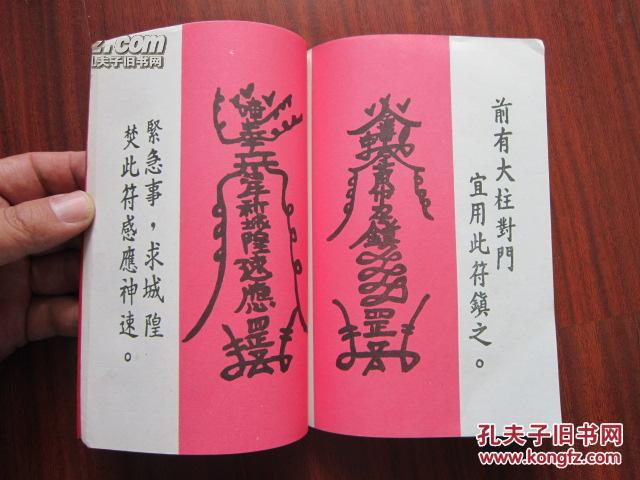 前有大柱對門
宜用此符鎮之。
鎮
罡
緊急事，求城隍
焚此符感應神速。
奉
祈城隍速應
罡
z.com
孔夫子旧书网
孔夫子旧书网
www.kongfz.com